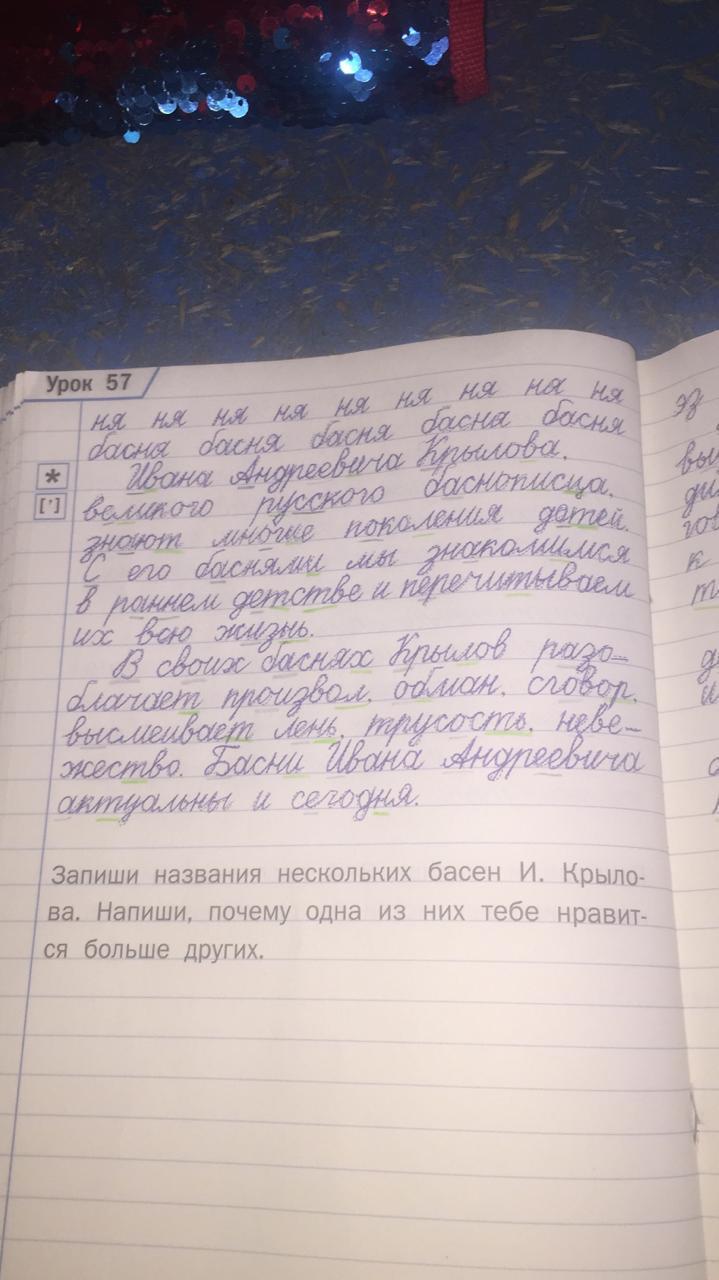 Урок 57
ня ня ня ня ня ня ня ня
басня басня басня басня басня
* Ивана Андреевича Крылова,
['] великого русского баснописца,
знают многие поколения детей.
С его баснями мы знакомимся
в раннем детстве и перечитываем
их всю жизнь.
В своих баснях Крылов разо-
блачает произвол, обман, сговор,
высмеивает лень, трусость, неве-
жество. Басни Ивана Андреевича
актуальны и сегодня.
Запиши названия нескольких басен И. Крыло-
ва. Напиши, почему одна из них тебе нравит-
ся больше других.
эз
вы
ди
гов
к
т